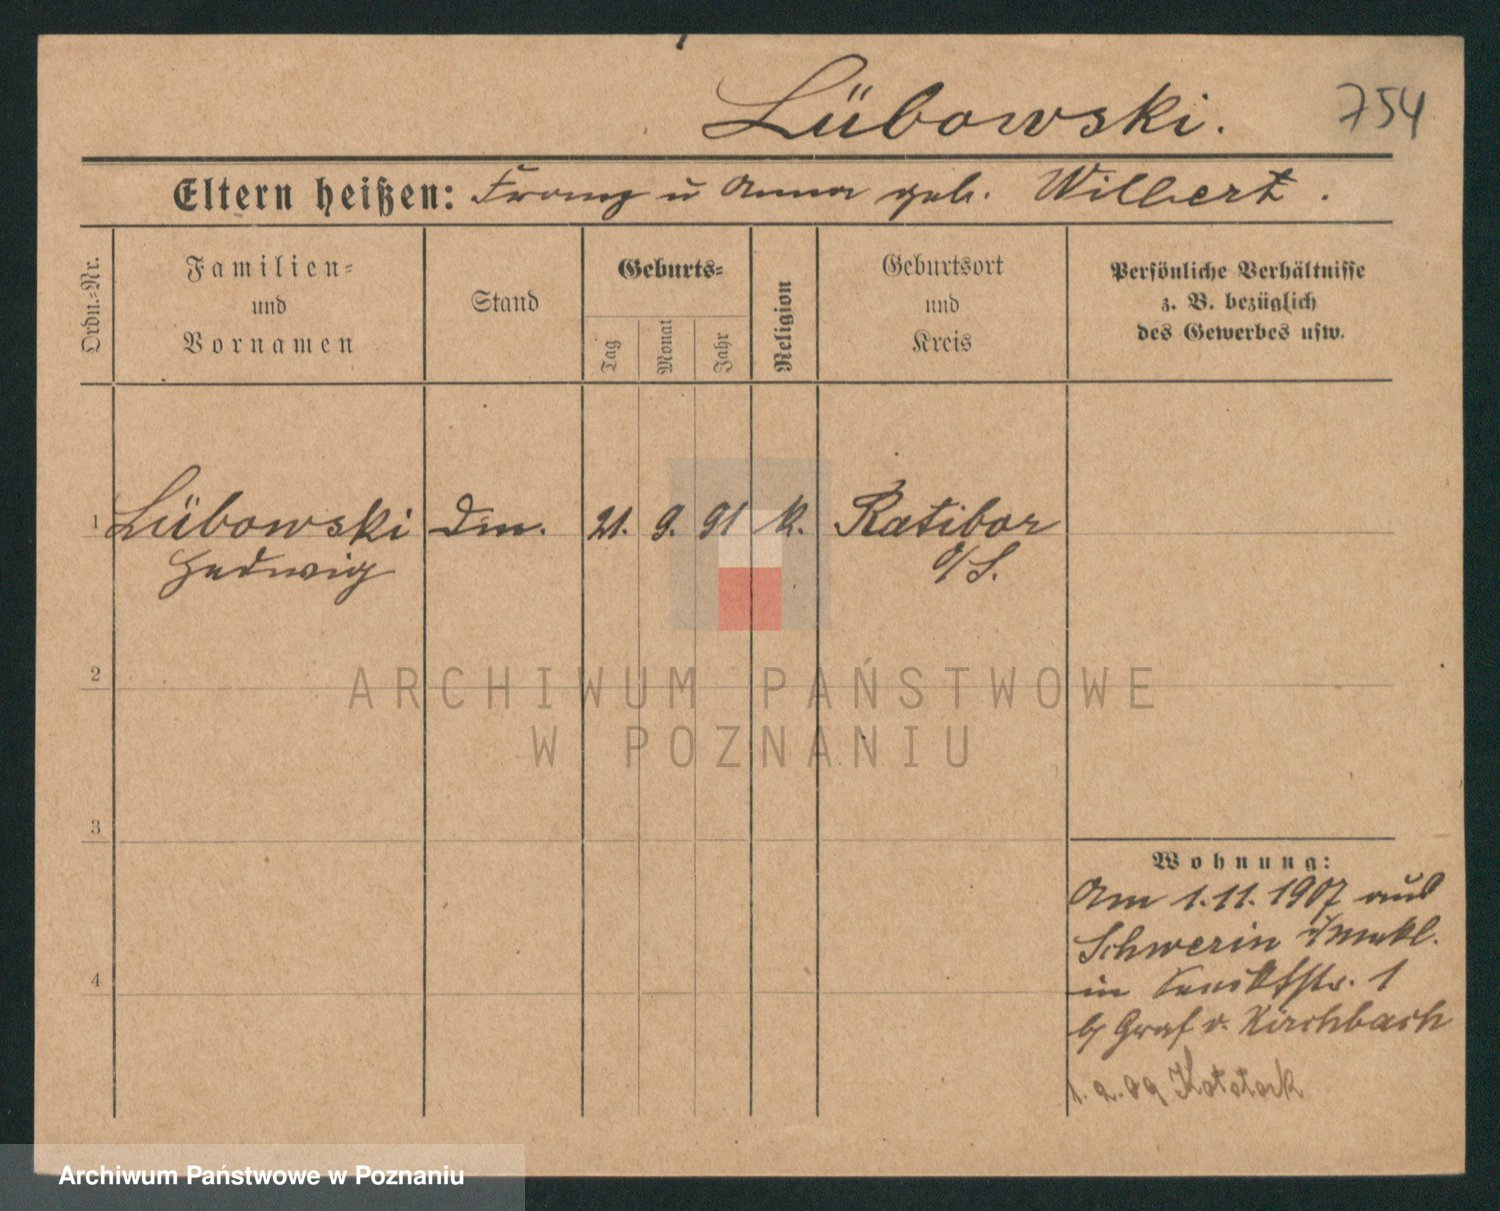 Lübowski.
754
Eltern heißen: Franz u Anna geb. Wilbert.
Ordn.-Nr.
Familien-
und
Vornamen
Stand
Geburts-
Tag
Monat
Jahr
Religion
Geburtsort
und
Kreis
Persönliche Verhältnisse
z. B. bezüglich
des Gewerbes usw.
1 Lübowski 21. 9. 91 k. Ratibor
Hedwig o/S.
2
3
4
Wohnung:
Am 1.11.1907 aus
Schwerin i/Meckl.
in 1
b/ Graf v. Kirchbach
ARCHIWUM PAŃSTWOWE
W POZNANIU
Archiwum Państwowe w Poznaniu